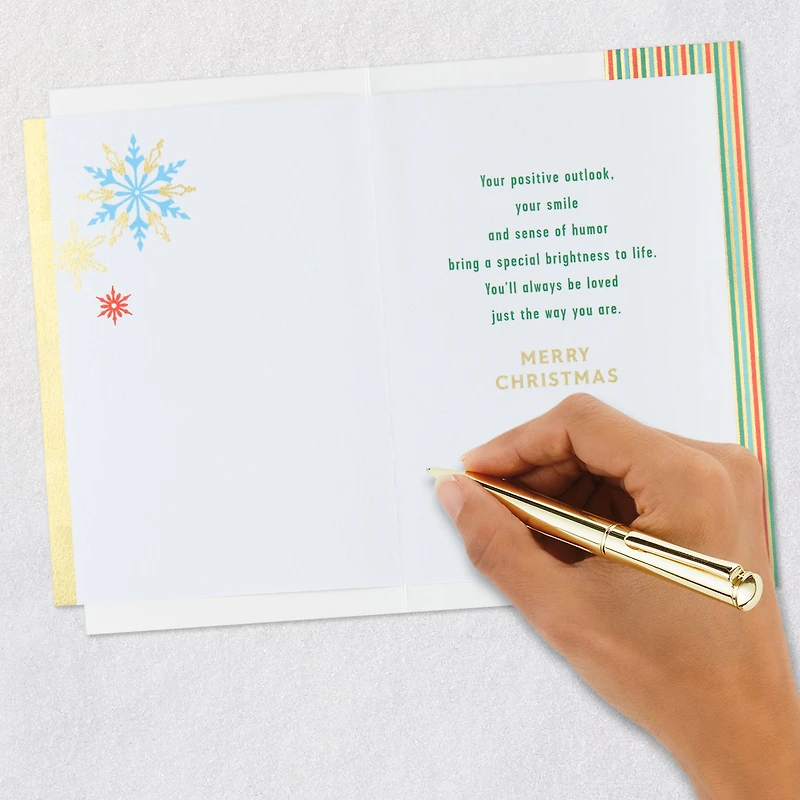 Your positive outlook,
your smile
and sense of humor
bring a special brightness to life.
You'll always be loved
just the way you are.
MERRY
CHRISTMAS